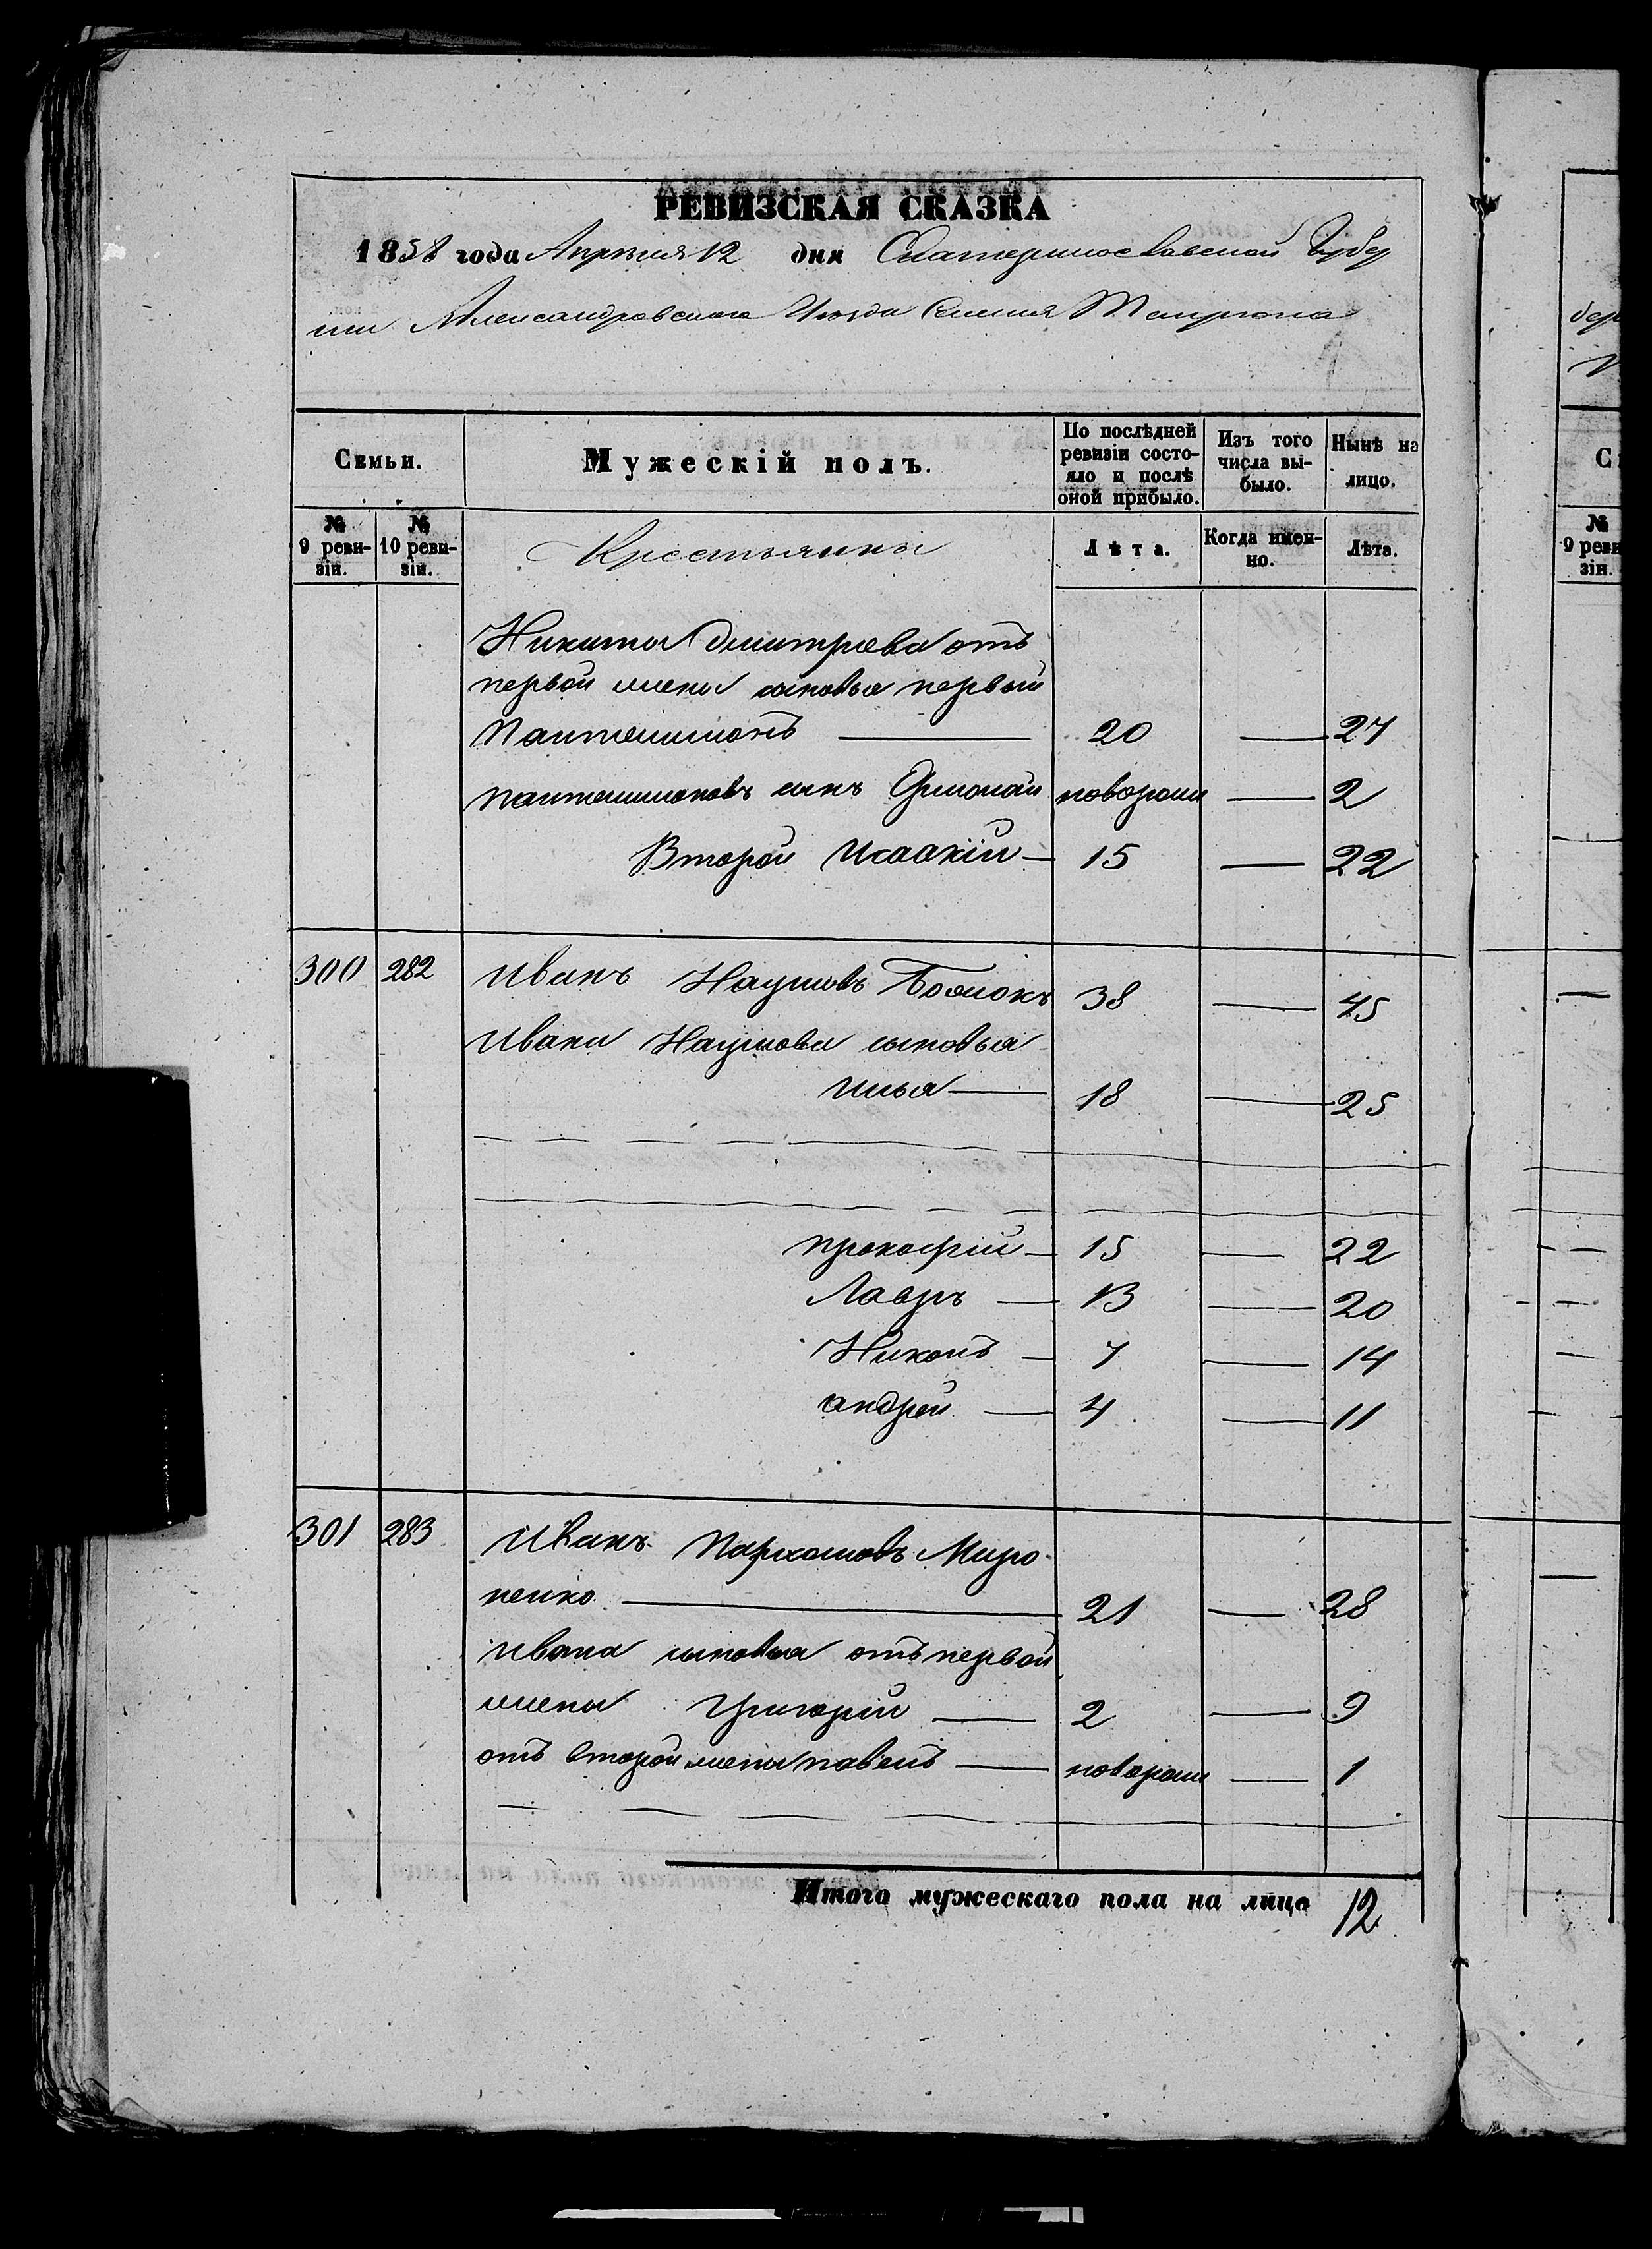 РЕВИЗСКАЯ СКАЗКА
1858 года Апрѣля 12 дня Екатеринославской Губер
ніи Александровскаго Уѣзда Селенія Темрюка
Семьи. Мужескій полъ. По послѣдней ревизіи состояло и послѣ оной прибыло. Изъ того числа выбыло. Нынѣ на лицо.
№ 9 ревизіи. № 10 ревизіи. Крестьянъ Лѣта. Когда именно. Лѣта.
Никита Дмитріева отъ
первой жены сыновья первый
Пантелимонъ 20 27
Пантелимоновъ сынъ Ермолай новорожд 2
Второй Исаакій 15 22
300 282 Иванъ Наумовъ 38 45
Ивана Наумова сыновья
Илья 18 25
Прокофій 15 22
Лавръ 13 20
Никонъ 7 14
Андрей 4 11
301 283 Иванъ Пархомовъ Миро
ненко 21 28
Ивана сыновья отъ первой
жены Григорій 2 9
отъ второй жены Павелъ новорожд 1
Итого мужескаго пола на лицо 12
С
№ 9 реви
зін.